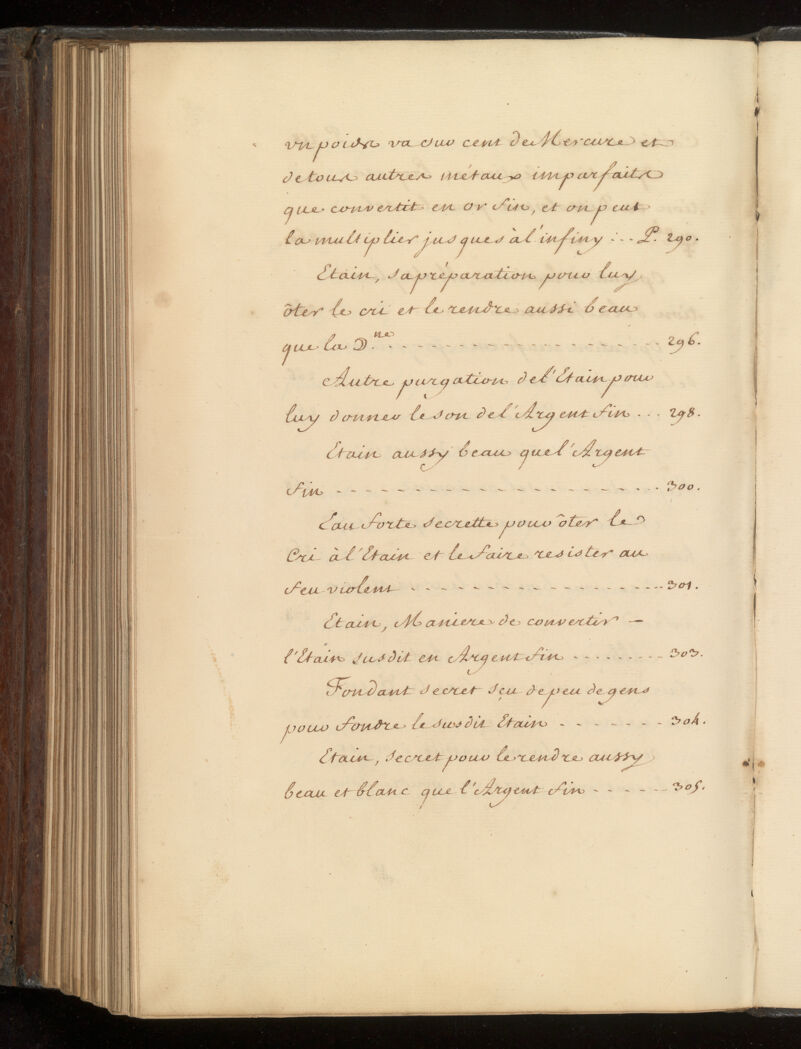 un poids va sur cent de Mercure et
de tous autres métaux imparfaits
que convertit en or fin, et on peut
la multiplier jusques à l'infiny ... P. 290.
Etain, sa préparation pour luy
ôter le cri et le rendre aussi beau
que la D.ne - - - - - - - - - - - - - - 296.
Autre purgation de l'Etain pour
luy donner le son de l'Argent fin ... 298.
Etain aussy beau que l'Argent
fin - - - - - - - - - - - - - - - - - - 300.
Eau forte secrette pour ôter le
Cri à l'Etain et le faire resister au
feu violent - - - - - - - - - - - - - - 301.
Etain, Maniere de convertir -
l'Etain susdit en Argent fin - - - - - - - - 303.
Fondant secret sçu de peu de gens
pour fondre le susdit Etain - - - - - - - 304.
Etain, secret pour le rendre aussy
beau et blanc que l'Argent fin - - - - - - 305.